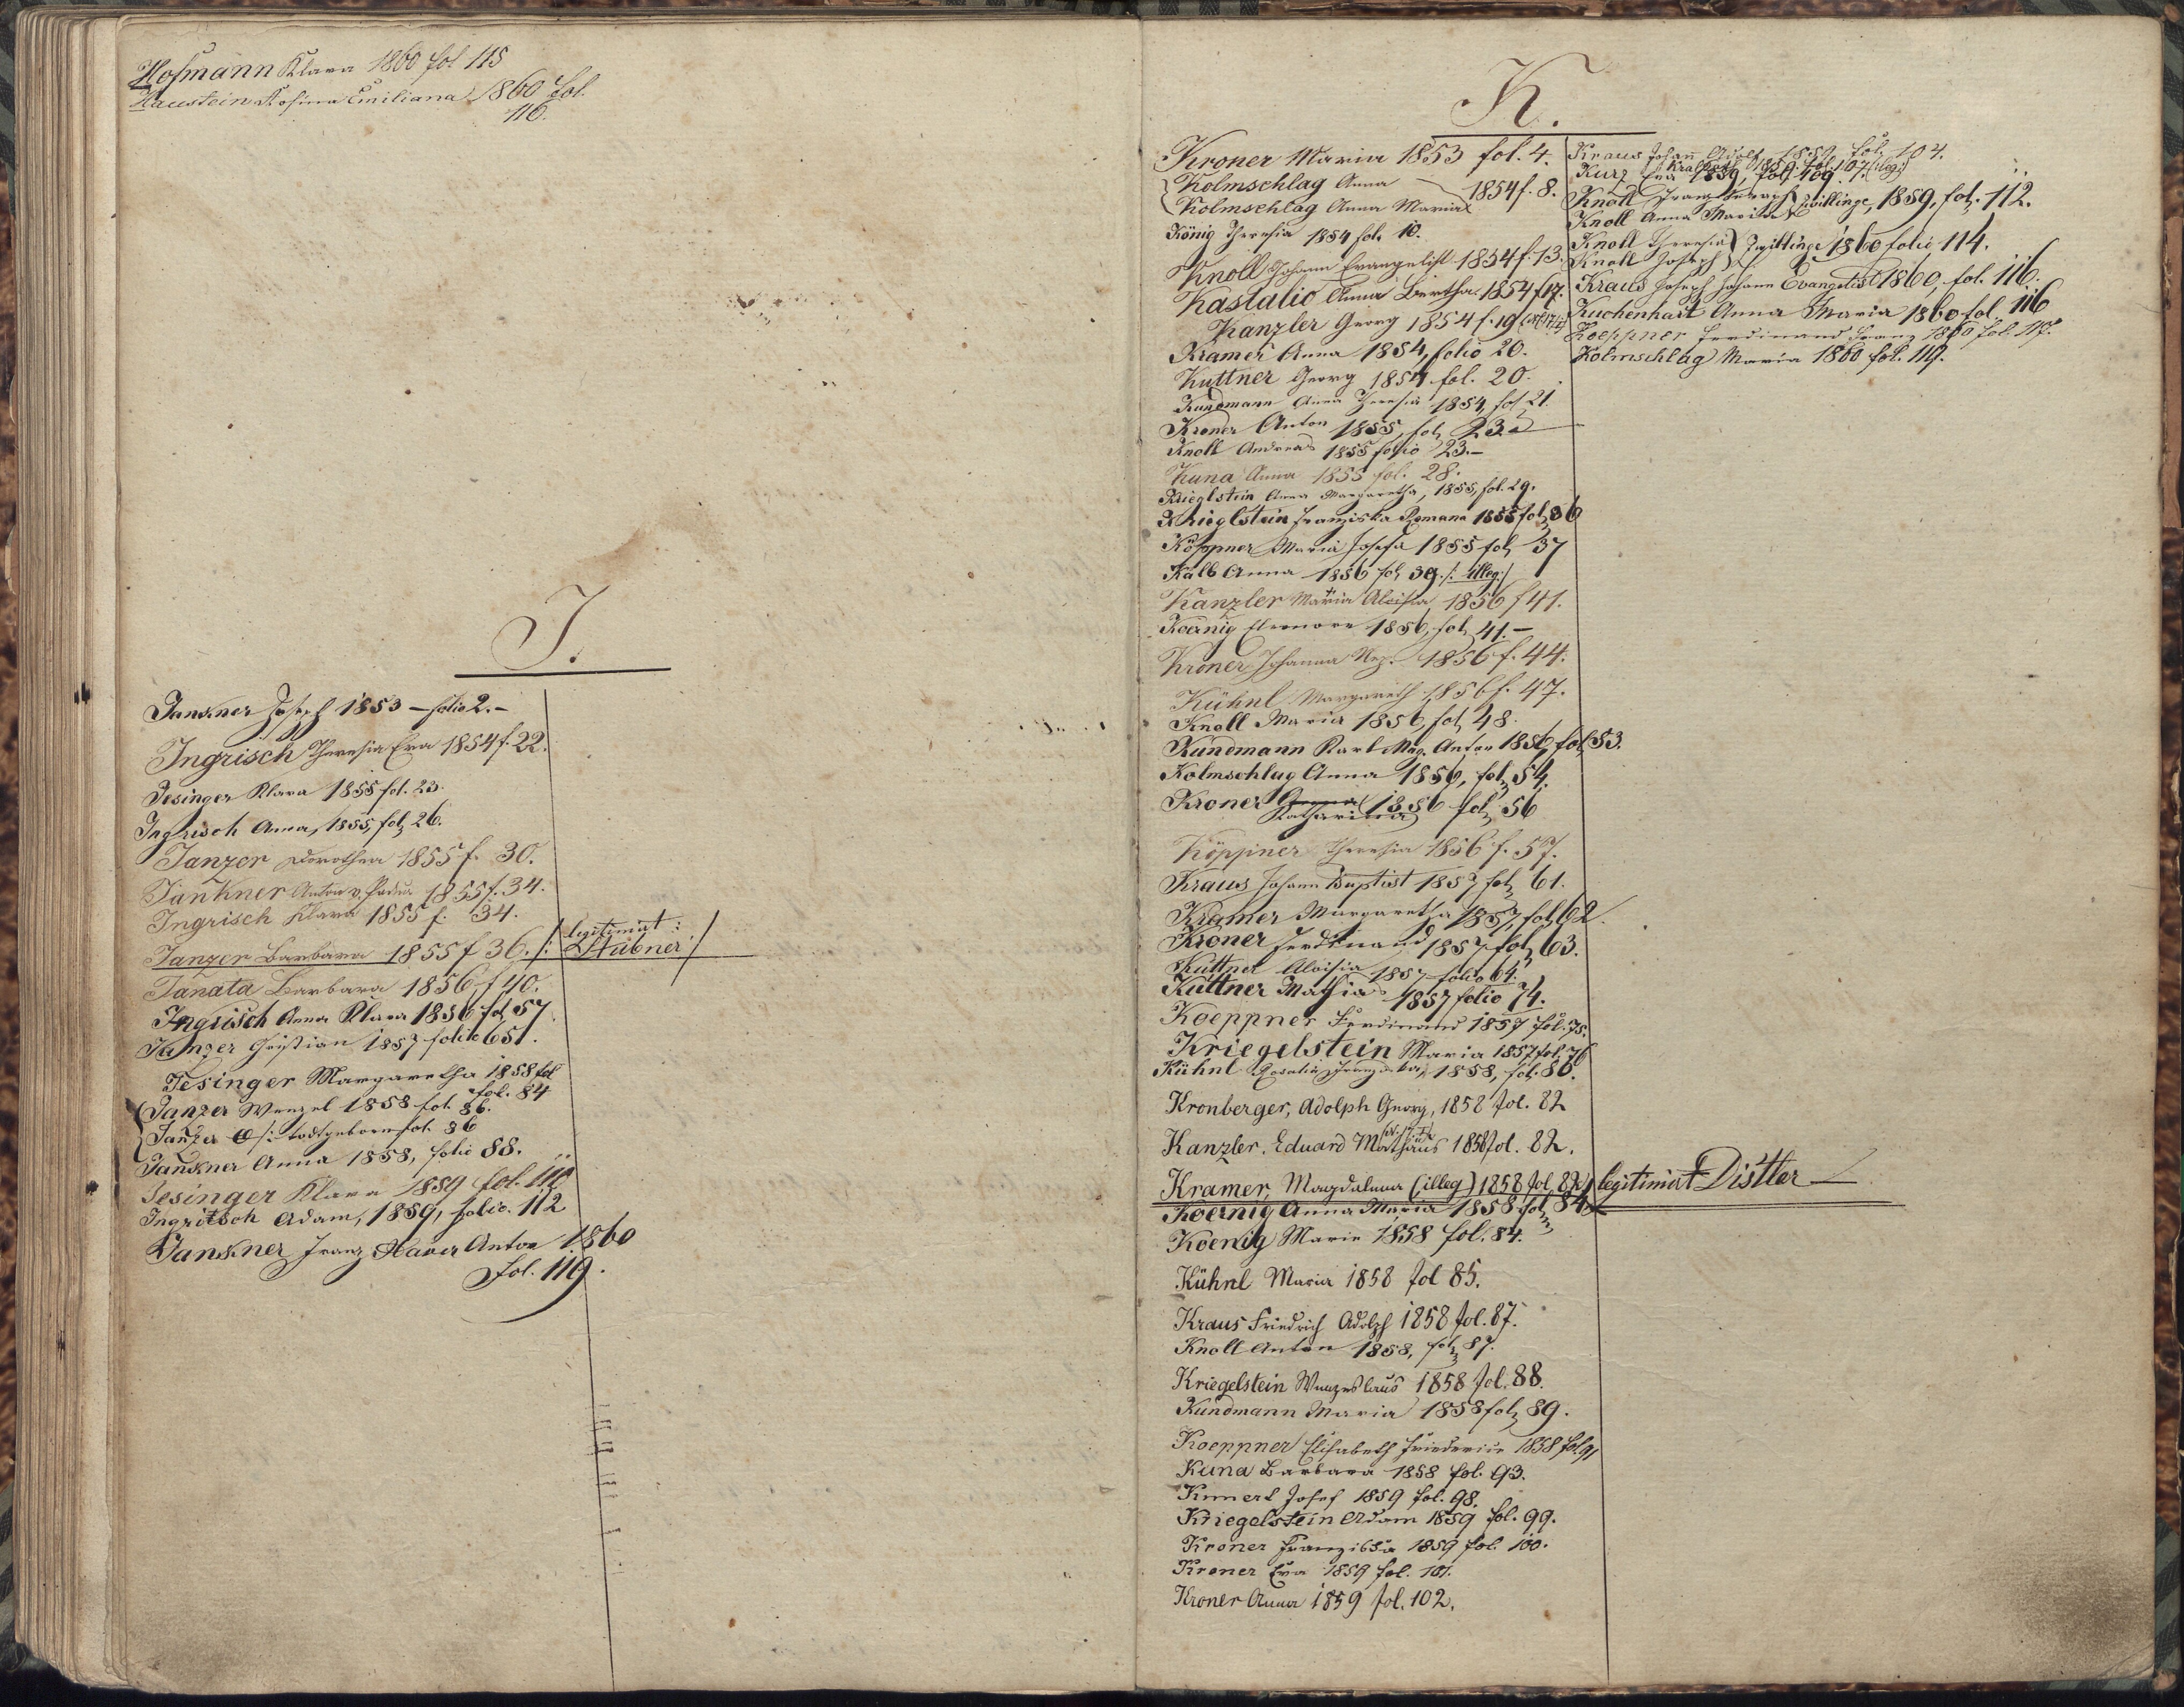 Hofmann Klara 1860 fol 115
Haustein Rosina Emiliana 1860 fol.
116.
J.
Jankner Joseph 1853 – folio 2.–
Ingrisch Theresia Eva 1854 f. 22.
Jesinger Klara 1855 fol. 23.
Ingrisch Anna, 1855, fol. 26.
Janzer Dorothea 1855 f. 30.
Jankner Anton v. Padua 1855 f. 34.
Ingrisch Klara 1855 f. 34.
Janzer Barbara 1855 f 36. /: legitimat:
Stübner :/
Janata Barbara 1856 f 40.
Ingrisch Anna Klara 1856 fol 57
Janzer Christian 1857 folio 651.
Jesinger Margaretha 1858 fol
fol. 84
Janzer Wenzel 1858 fol. 86.
Janzer /: todtgeboren fol. 86
Jankner Anna 1858, folio 88.
Jesinger Klara 1859 fol. 110
Ingritsch Adam, 1859, folio. 112
Jankner Franz Xaver Anton 1860
fol. 119.
K.
Kroner Maria 1853 fol. 4.
Kolmschlag Anna
Kolmschlag Anna Maria 1854 f. 8.
König Theresia 1854 fol. 10.
Knoll Johann Evangelist 1854 f. 13.
Kastalio Anna Bertha 1854 f 17.
Kanzler Georg 1854 f. 19
Kramer Anna 1854, folio 20.
Kuttner Georg 1854 fol. 20.
Kundmann Anna Theresia 1854, fol 21.
Kroner Anton 1855, fol. 23.
Knoll Andreas 1855 folio 23.–
Kuna Anna 1855 fol. 28.
Krieglstein Anna Margaretha, 1855, fol. 29.
Krieglstein Franziska Romana 1855 fol. 36
Köppner Maria Josefa 1855 fol. 37
Kalb Anna 1856 fol. 39. /: illeg:/
Kanzler Maria Aloisia 1856 f 41.
Koenig Eleonore 1856, fol. 41.–
Kroner Johanna Nep. 1856 f. 44.
Kühnl Margareth 1856 f. 47.
Knoll Maria 1856, fol. 48.
Kundmann Karl Mag. Anton 1856, fol. 53.
Kolmschlag Anna 1856, fol. 54.
Kroner Anna 1856 fol. 56
Katharina
Köppner Theresia 1856 f. 57.
Kraus Johann Baptist 1857 fol. 61.
Kramer Margaretha 1857, fol. 62.
Kroner Ferdinand 1857 fol. 63.
Kuttner Aloisia 1857 folio 64.
Kuttner Mathias 1857 folio 74.
Koeppner Ferdinand 1857 fol. 75.
Kriegelstein Maria 1857 fol. 76
Kühnl Rosalia Franziska, 1858, fol. 80.
Kronberger, Adolph Georg, 1858 fol. 82
Kanzler, Eduard Mathäus 1858 fol. 82.
Kramer, Magdalena (illeg) 1858 fol 82 legitimirt Distler
Koernig Anna Maria 1858 fol. 84.
Koenig Marie 1858 fol. 84.
Kühnl Maria 1858 fol 85.
Kraus Friedrich Adolph 1858 fol. 87.
Knoll Anton 1858, fol. 87.
Kriegelstein Wenzeslaus 1858 fol. 88.
Kundmann Maria 1858 fol. 89.
Koeppner Elisabeth Friederice 1858 fol. 91
Kuna Barbara 1858 fol. 93.
Kunerl Josef 1859 fol. 98.
Kriegelstein Adam 1859 fol. 99.
Kroner Franziska 1859 fol. 100.
Kroner Eva 1859 fol. 101.
Kroner Anna 1859 fol. 102.
Kraus Johann Adolf 1859 fol. 104.
1859 fol. 107. (illeg)
Kurz Eva 1859, fol. 109.
Knoll Franz Seraph
Knoll Anna Maria Zwillinge, 1859, fol. 112.
Knoll Theresia
Knoll Joseph Zwillinge 1860 folio 114.
Kraus Joseph Johann Evangelist 1860, fol. 116.
Kuchenhart Anna Maria 1860 fol. 116
Koeppner Ferdinand Franz 1860 fol. 117.
Kolmschlag Maria 1860 fol. 119.